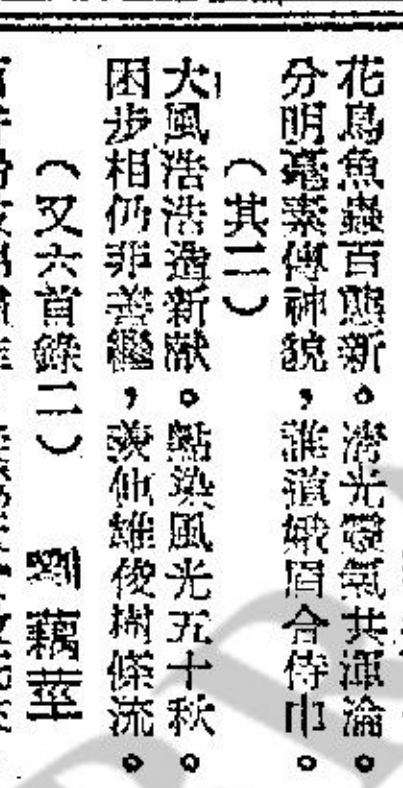 花鳥魚蟲百態新。清光靈氣共渾淪。
分明毫素傳神貌，誰道娥眉合侍巾。
（其二）
大風浩浩造新猷。點染風光五十秋。
困步相仍非善繼，羨仙雄俊樹條流。
（又六首錄二）　劉藕華